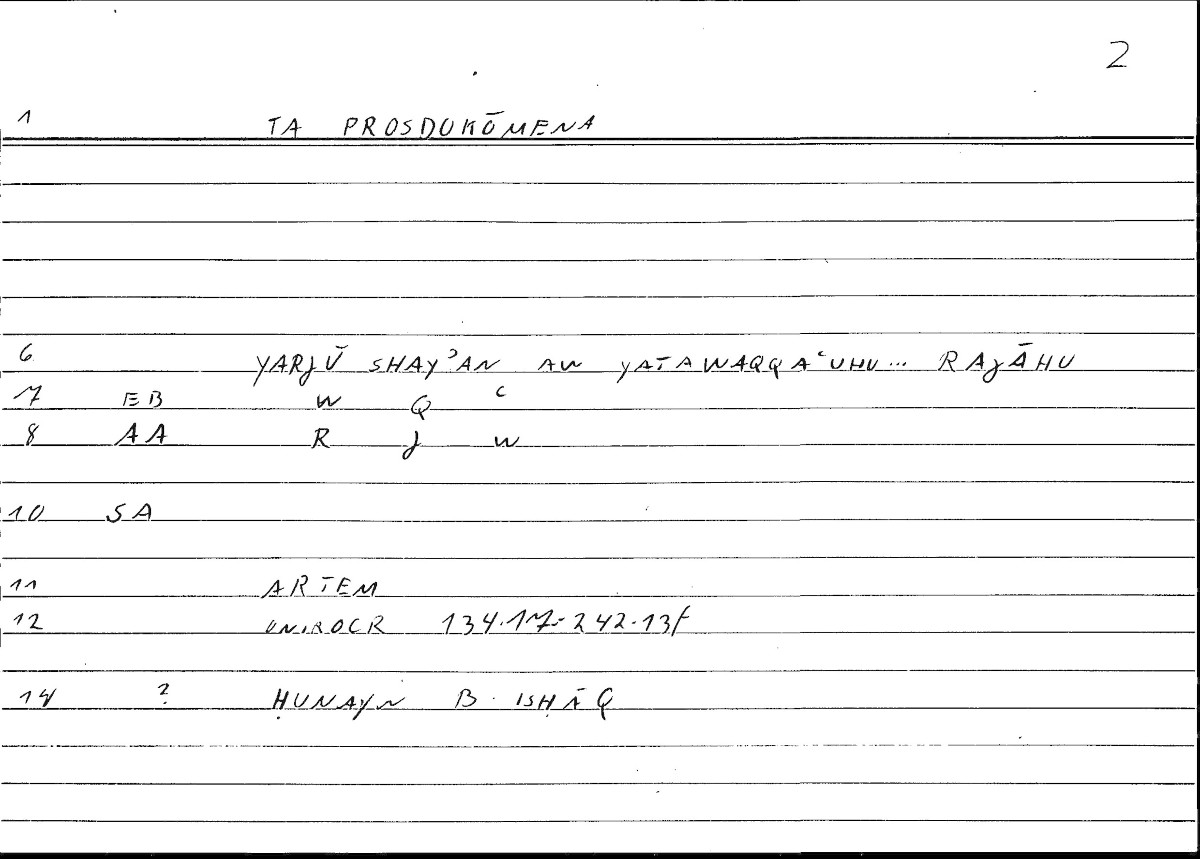 2
1 TA PROSDOKŌMENA
6 YARJŪ SHAYʾAN AW YATAWAQQAʿUHU... RAJĀHU
7 EB W Q ʿ
8 AA R J W
10 SA
11 ARTEM
12 ONIROCR 134.17-242.13f
14 ? ḤUNAYN B. ISḤĀQ